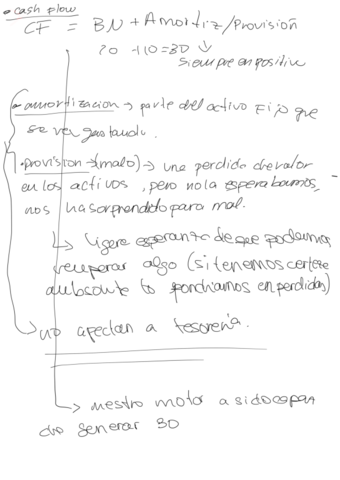 • cash flow
CF = BN + Amortiz/Provisión
20 + 10 = 30 ↓
siempre en positivo
- amortizacion → parte del activo Fijo que
se va gastando.
• provision → (malo) → una perdida de valor
en los activos, pero no la esperabamos,
nos ha sorprendido para mal.
↳ ligera esperanza de que podamos
recuperar algo (si tenemos certeza
absoluta lo pondríamos en perdidas)
→ no afectan a tesorería.
↳ nuestro motor a sido capaz
de generar 30